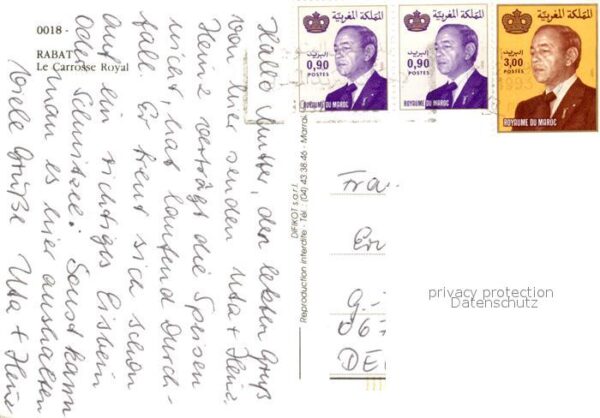 0018 -
RABAT
Le Carrosse Royal
Hallo Mutter, den letzten Gruß
von hier senden Uta + Heinz.
Heinz verträgt die Speisen
nicht, hat laufend Durch-
fall. Er freut sich schon
auf ein richtiges Eisbein
oder Schnitzel. Sonst kann
man es hier aushalten
Viele Grüße Uta + Heinz
DIFIKOT s.a.r.l.
Reproduction interdite - Tél.: (04) 43.38.46 - Marrak
المملكة المغربية
البريد
0,90
POSTES
ROYAUME DU MAROC
المملكة المغربية
البريد
0,90
POSTES
ROYAUME DU MAROC
المملكة المغربية
البريد
3,00
POSTES
ROYAUME DU MAROC
1993
Fra
G.-
067
DE
privacy protection
Datenschutz